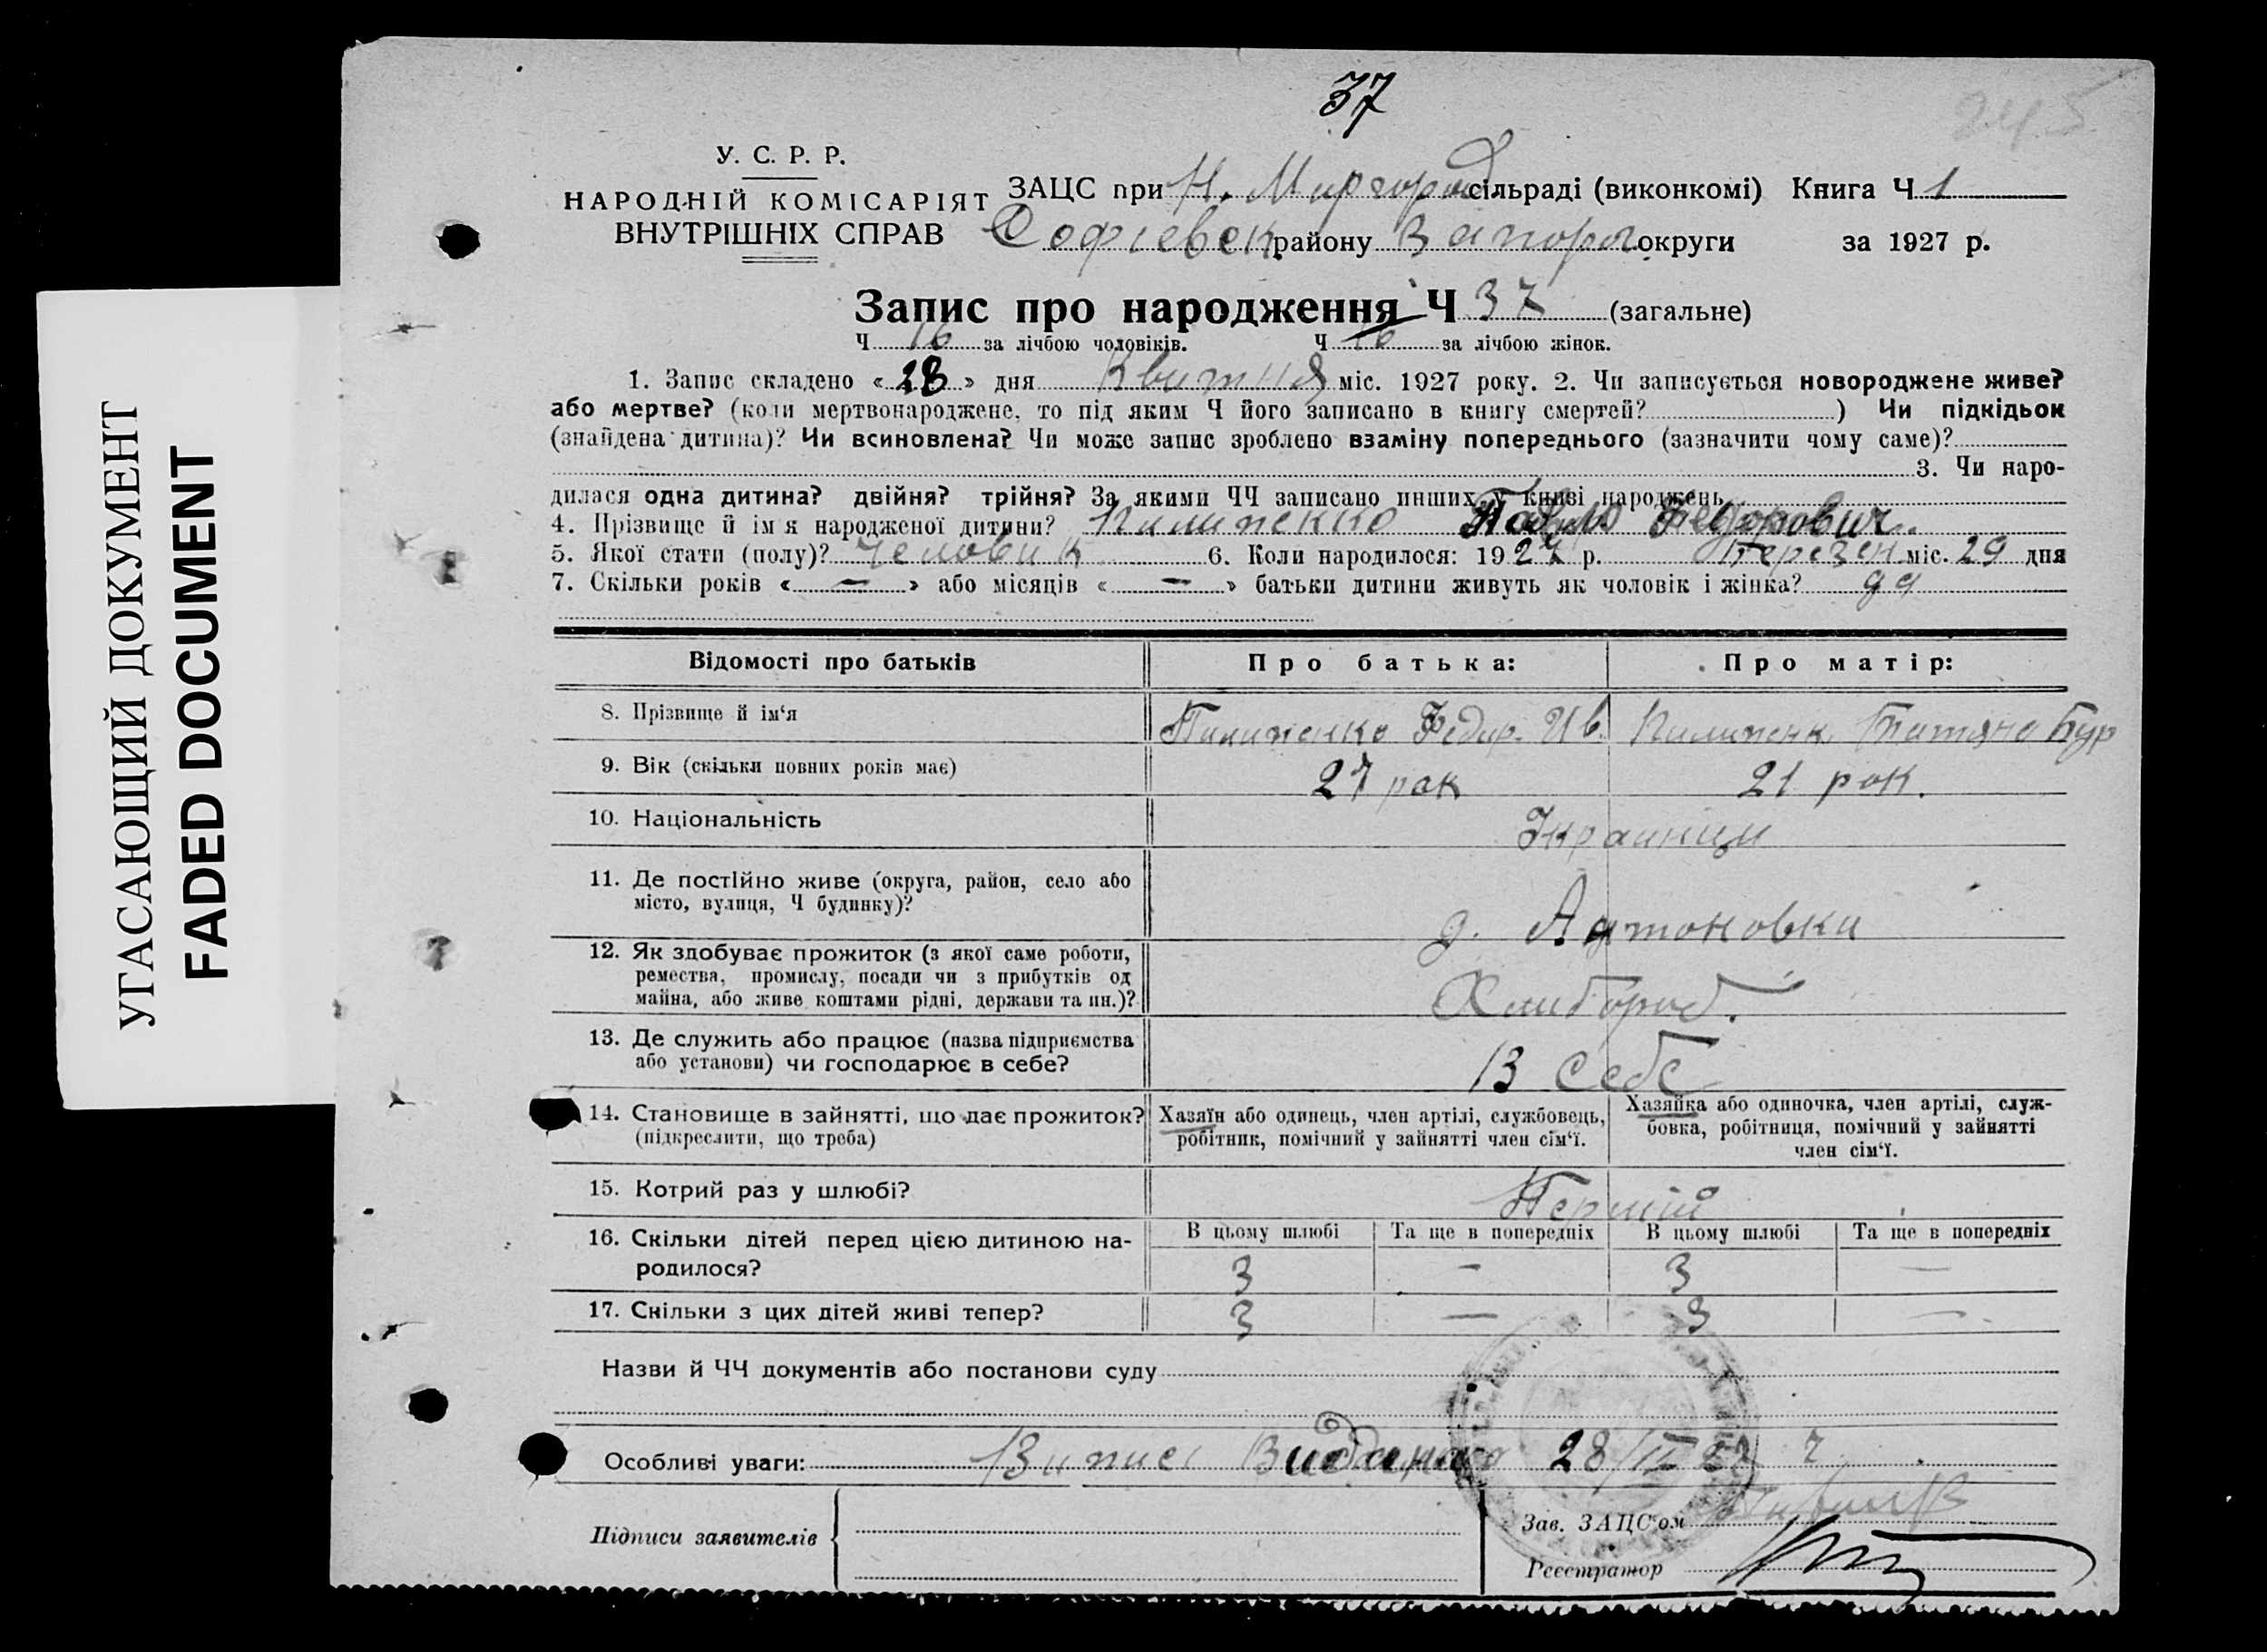 37
У. С. Р. Р.
НАРОДНІЙ КОМІСАРІЯТ
ВНУТРІШНІХ СПРАВ
ЗАЦС при Н. Миргород сільраді (виконкомі) Книга Ч 1
Софіевск району Запорг округи за 1927 р.
Запис про народження Ч 37 (загальне)
Ч 16 за лічбою чоловіків. Ч 16 за лічбою жінок.
1. Запис складено « 28 » дня Квитня міс. 1927 року. 2. Чи записується новороджене живе?
або мертве? (коли мертвонароджене, то під яким Ч його записано в книгу смертей? ) Чи підкідьок
(знайдена дитина)? Чи всиновлена? Чи може запис зроблено взаміну попереднього (зазначити чому саме)?
3. Чи наро-
дилася одна дитина? двійня? трійня? За якими ЧЧ записано инших у книзі народжень
4. Прізвище й ім'я народженої дитини? Пилипенко Павло Федорович.
5. Якої стати (полу)? Человик 6. Коли народилося: 1927 р. Березен міс. 29 дня
7. Скільки років « — » або місяців « — » батьки дитини живуть як чоловік і жінка?
Відомості про батьків
Про батька:
Про матір:
8. Прізвище й ім'я Пилипенко Федир. Ив. Пилипенк Татяна
9. Вік (скільки повних років має) 27 рок 21 рок.
10. Національність Украинци
11. Де постійно живе (округа, район, село або
місто, вулиця, Ч будинку)?
д. Антоновки
12. Як здобуває прожиток (з якої саме роботи,
ремества, промислу, посади чи з прибутків од
майна, або живе коштами рідні, держави та ин.)?
Хлибороб.
13. Де служить або працює (назва підприємства
або установи) чи господарює в себе?
В себе
14. Становище в зайнятті, що дає прожиток?
(підкреслити, що треба)
Хазяїн або одинець, член артілі, службовець,
робітник, помічний у зайнятті член сім'ї.
Хазяйка або одиночка, член артілі, служ-
бовка, робітниця, помічний у зайнятті
член сім'ї.
15. Котрий раз у шлюбі? Перший
16. Скільки дітей перед цією дитиною на-
родилося?
В цьому шлюбі Та ще в попередніх В цьому шлюбі Та ще в попередніх
3 — 3 —
17. Скільки з цих дітей живі тепер? 3 — 3 —
Назви й ЧЧ документів або постанови суду
Особливі уваги: Випись Видана 28/IV 27 г
Підписи заявителів
Зав. ЗАЦС'ом
Реєстратор
УГАСАЮЩИЙ ДОКУМЕНТ
FADED DOCUMENT